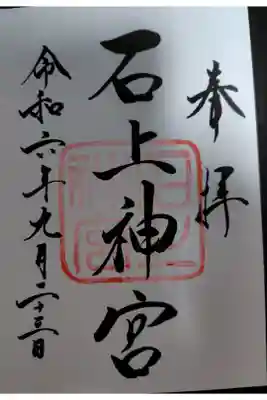 奉拝
石上神宮
令和六年九月二十三日